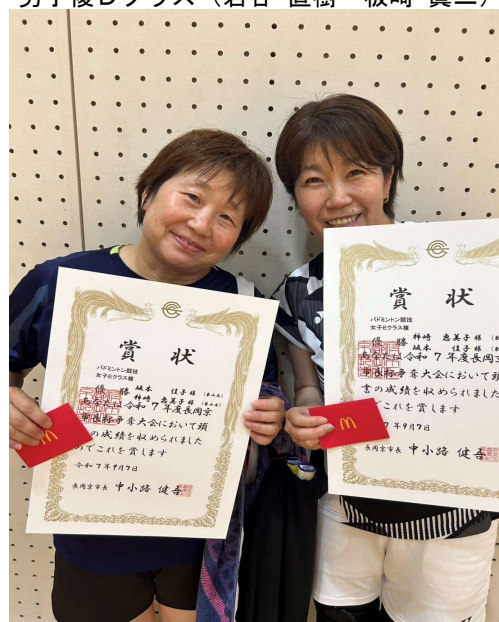 男子複Dクラス（岩谷 直樹 板崎 真二）
賞 状
バドミントン競技
女子Eクラス複
優 勝 坂本 佳子様
柿崎 恵美子様
あなたは令和7年度長岡京
市長杯争奪大会において頭
書の成績を収められました
のでこれを賞します
令和7年9月7日
長岡京市長 中小路 健吾
賞 状
バドミントン競技
女子Eクラス複
優 勝 柿崎 恵美子様
坂本 佳子様
あなたは令和7年度長岡京
市長杯争奪大会において頭
書の成績を収められました
でこれを賞します
7年9月7日
長岡京市長 中小路 健吾